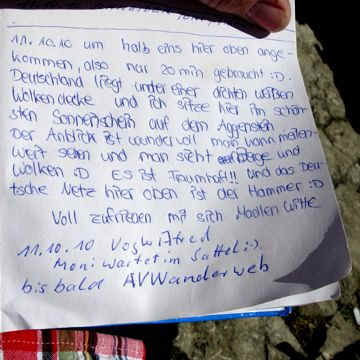 11.10.10 um halb eins hier oben ange-
kommen, also nur 20 min gebraucht :D.
Deutschland liegt unter einer dichten weißen
Wolkendecke und ich sitze hier im schön-
sten Sonnenschein auf dem Aggenstein
Der Anblick ist wundervoll man kann meilen-
weit sehen und man sieht Berge und
Wolken :D Es ist Traumhaft!! Und das Deu-
tsche Netz hier oben ist der Hammer :D
Voll zufrieden mit sich Witte
11.10.10 Wilfried
Moni wartet im Sattel :-)
bis bald AVWanderweb